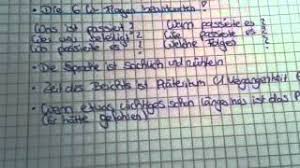 • Die 6 W-Fragen beantworten!
Was ist passiert? Wann passierte es?
Wer war beteiligt? Wie passierte es?
Wo passierte es? Welche Folgen?
• Die Sprache ist sachlich und nüchtern
• Zeit des Berichts ist Präteritum (1 Vergangenheit
• Wenn etwas schon längs ist das P
(Er hatte gefahren)